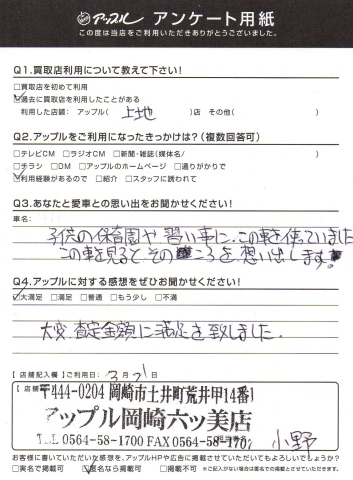 アップル アンケート用紙
この度は当店をご利用いただきありがとうございました。
Q1.買取店利用について教えて下さい!
□買取店を初めて利用
☑過去に買取店を利用したことがある
利用した店舗: アップル( 上地 )店 その他( )
Q2.アップルをご利用になったきっかけは?(複数回答可)
□テレビCM □ラジオCM □新聞・雑誌(媒体名/ )
□チラシ □DM □アップルのホームページ □通りがかりで
☑利用経験があるので □紹介 □スタッフに誘われて
Q3.あなたと愛車との思い出をお聞かせください!
車名:
子供の保育園や習い事に、この車を使っていました
この車を見ると、そのころを思い出します。
Q4.アップルに対する感想をぜひお聞かせください!
☑大満足 □満足 □普通 □もう少し □不満
大変、査定金額に満足を致しました。
【店舗記入欄】ご利用日: 3月21日
【店舗
〒444-0204 岡崎市土井町荒井甲14番1
アップル岡崎六ッ美店
TEL 0564-58-1700 FAX 0564-58-170
小野
お客様に書いていただいた感想を、アップルHPや広告に掲載させていただいてもよろしいでしょうか?
□実名で掲載可 ☑匿名なら掲載可 □掲載不可 ※ご記入がない場合は匿名での掲載とさせていただきます。